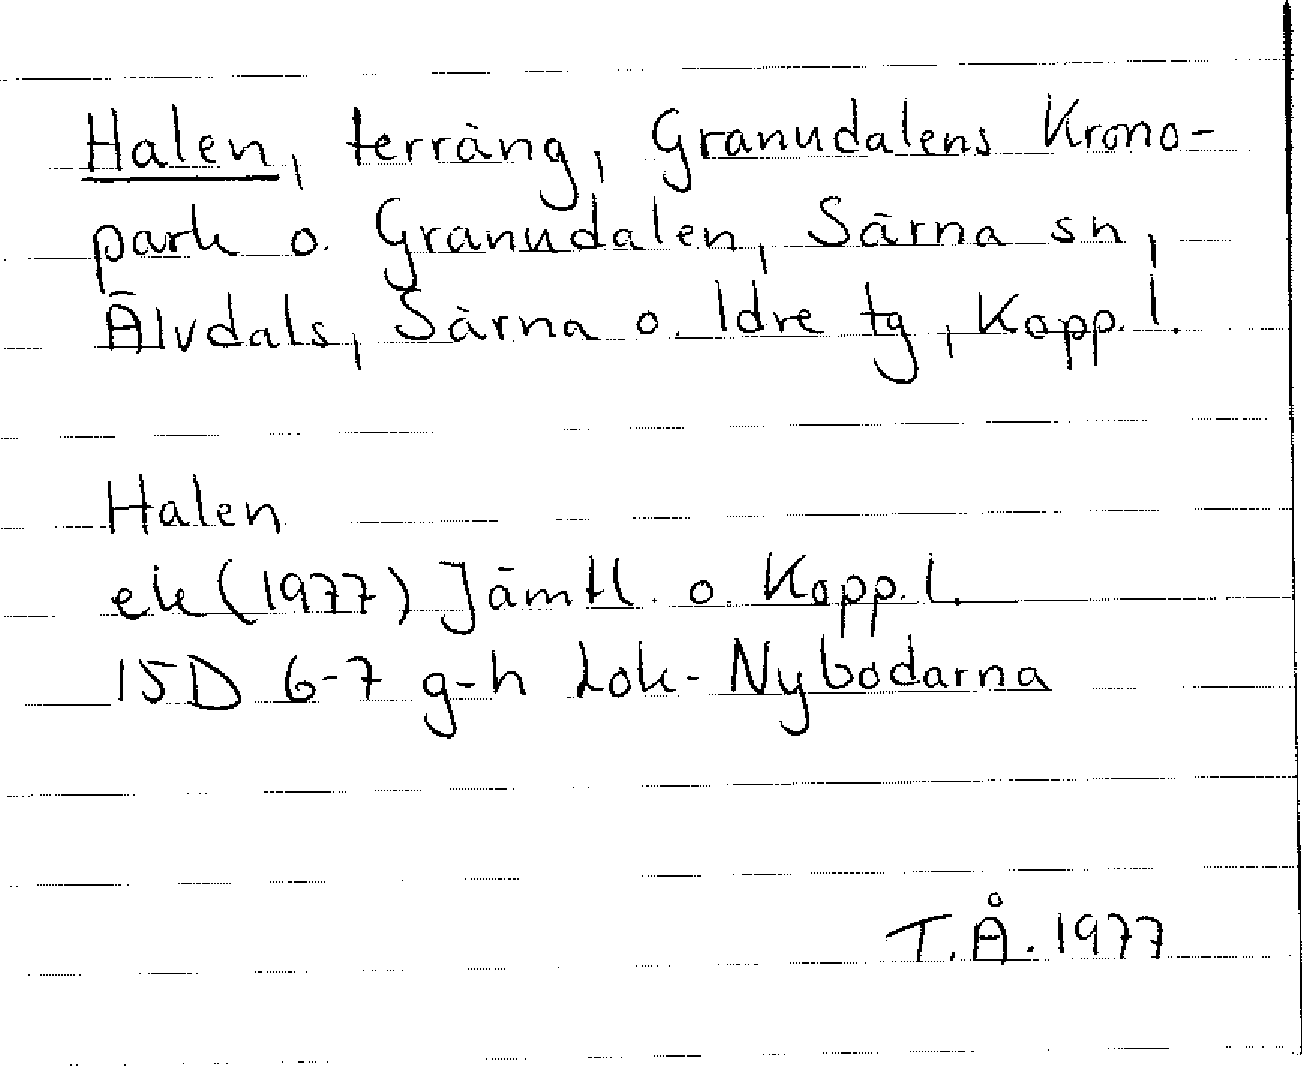 Halen, terräng, Granudalens Krono-
park o. Granudalen, Särna sn,
Älvdals, Särna o. Idre tg, Kopp. l.
Halen
ek (1977) Jämtl. o. Kopp. l.
15D 6-7 g-h Lok- Nybodarna
T.Å. 1977